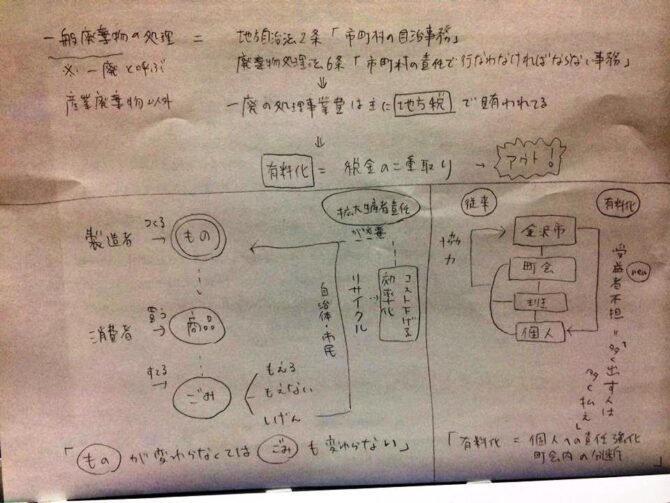 一般廃棄物の処理 = 地方自治法2条「市町村の自治事務」
※一廃と呼ぶ 廃棄物処理法6条「市町村の責任で行なわなければならない事務」
産業廃棄物以外
⇓
一廃の処理事業費は主に地方税で賄われてる
⇓
有料化 = 税金の二重取り → アウト!
製造者 つくる→ もの
消費者 買う→ 商品
すてる→ ごみ
もえる
もえない
しげん
自治体・市民
リサイクル
拡大生産者責任
が必要
効率化
コスト下げる
「ものが変わらなくてはごみも変わらない」
従来
協力
金沢市
町会
班
個人
有料化
new
受益者負担=多く出す人は
多く払え
「有料化 = 個人への責任強化
町会内の分断」